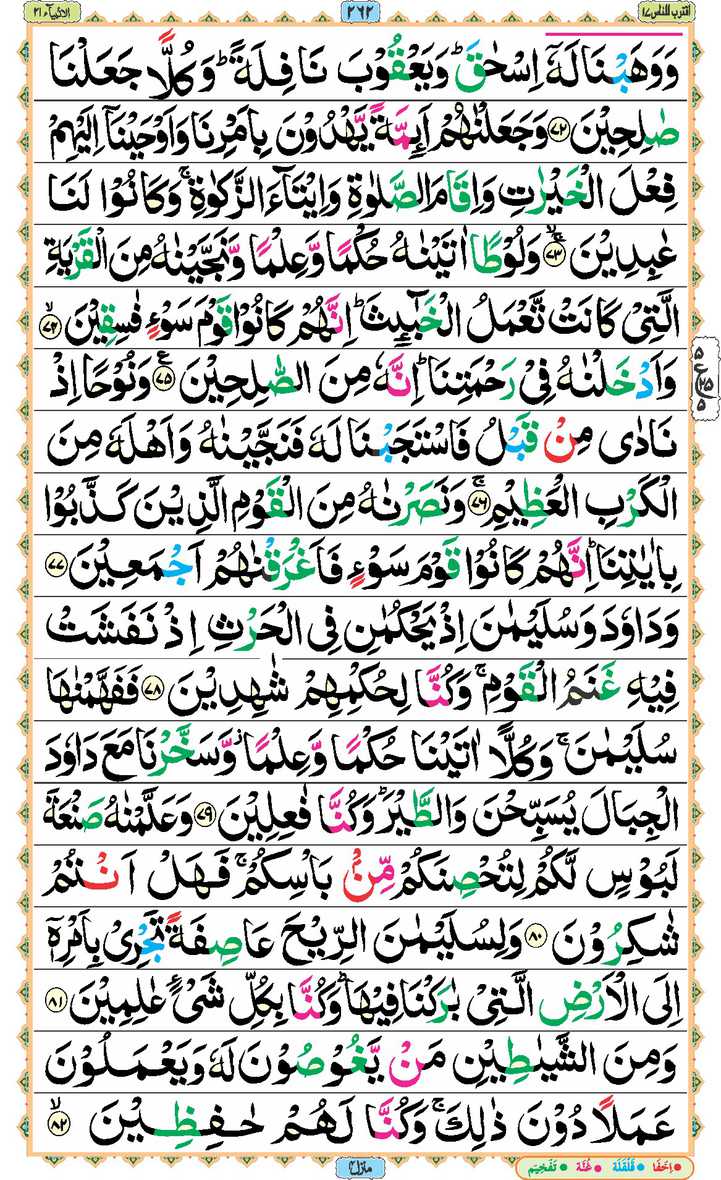 اقترب للناس ١٧
٤٦٢
الانبیآء ٢١
وَوَهَبْنَا لَهٗۤ اِسْحٰقَ ؕ وَيَعْقُوْبَ نَافِلَةً ؕ وَكُلًّا جَعَلْنَا
صٰلِحِيْنَ ﴿۷۲﴾ وَجَعَلْنٰهُمْ اَئِمَّةً يَّهْدُوْنَ بِاَمْرِنَا وَاَوْحَيْنَاۤ اِلَيْهِمْ
فِعْلَ الْخَيْرٰتِ وَاِقَامَ الصَّلٰوةِ وَاِيْتَآءَ الزَّكٰوةِ ۚ وَكَانُوْا لَنَا
عٰبِدِيْنَ ۚۙ ﴿۷۳﴾ وَلُوْطًا اٰتَيْنٰهُ حُكْمًا وَّعِلْمًا وَّنَجَّيْنٰهُ مِنَ الْقَرْيَةِ
الَّتِىْ كَانَتْ تَّعْمَلُ الْخَبٰٓئِثَ ؕ اِنَّهُمْ كَانُوْا قَوْمَ سَوْءٍ فٰسِقِيْنَ ۙ ﴿۷۴﴾
وَاَدْخَلْنٰهُ فِىْ رَحْمَتِنَا ؕ اِنَّهٗ مِنَ الصّٰلِحِيْنَ ﴿۷۵﴾ ع وَنُوْحًا اِذْ
نَادٰى مِنْ قَبْلُ فَاسْتَجَبْنَا لَهٗ فَنَجَّيْنٰهُ وَاَهْلَهٗ مِنَ
الْكَرْبِ الْعَظِيْمِ ۚ ﴿۷۶﴾ وَنَصَرْنٰهُ مِنَ الْقَوْمِ الَّذِيْنَ كَذَّبُوْا
بِاٰيٰتِنَا ؕ اِنَّهُمْ كَانُوْا قَوْمَ سَوْءٍ فَاَغْرَقْنٰهُمْ اَجْمَعِيْنَ ﴿۷۷﴾
وَدَاوٗدَ وَسُلَيْمٰنَ اِذْ يَحْكُمٰنِ فِى الْحَرْثِ اِذْ نَفَشَتْ
فِيْهِ غَنَمُ الْقَوْمِ ۚ وَكُنَّا لِحُكْمِهِمْ شٰهِدِيْنَ ﴿۷۸﴾ فَفَهَّمْنٰهَا
سُلَيْمٰنَ ۚ وَكُلًّا اٰتَيْنَا حُكْمًا وَّعِلْمًا ۫ وَّسَخَّرْنَا مَعَ دَاوٗدَ
الْجِبَالَ يُسَبِّحْنَ وَالطَّيْرَ ؕ وَكُنَّا فٰعِلِيْنَ ﴿۷۹﴾ وَعَلَّمْنٰهُ صَنْعَةَ
لَبُوْسٍ لَّكُمْ لِتُحْصِنَكُمْ مِّنْۢ بَاْسِكُمْ ۚ فَهَلْ اَنْتُمْ
شٰكِرُوْنَ ﴿۸۰﴾ وَلِسُلَيْمٰنَ الرِّيْحَ عَاصِفَةً تَجْرِىْ بِاَمْرِهٖۤ
اِلَى الْاَرْضِ الَّتِىْ بٰرَكْنَا فِيْهَا ؕ وَكُنَّا بِكُلِّ شَىْءٍ عٰلِمِيْنَ ﴿۸۱﴾
وَمِنَ الشَّيٰطِيْنِ مَنْ يَّغُوْصُوْنَ لَهٗ وَيَعْمَلُوْنَ
عَمَلًا دُوْنَ ذٰلِكَ ۚ وَكُنَّا لَهُمْ حٰفِظِيْنَ ۙ ﴿۸۲﴾
منزل ٤
اِخْفَا • قَلْقَلَة • غُنَّة • تَفْخِيْم